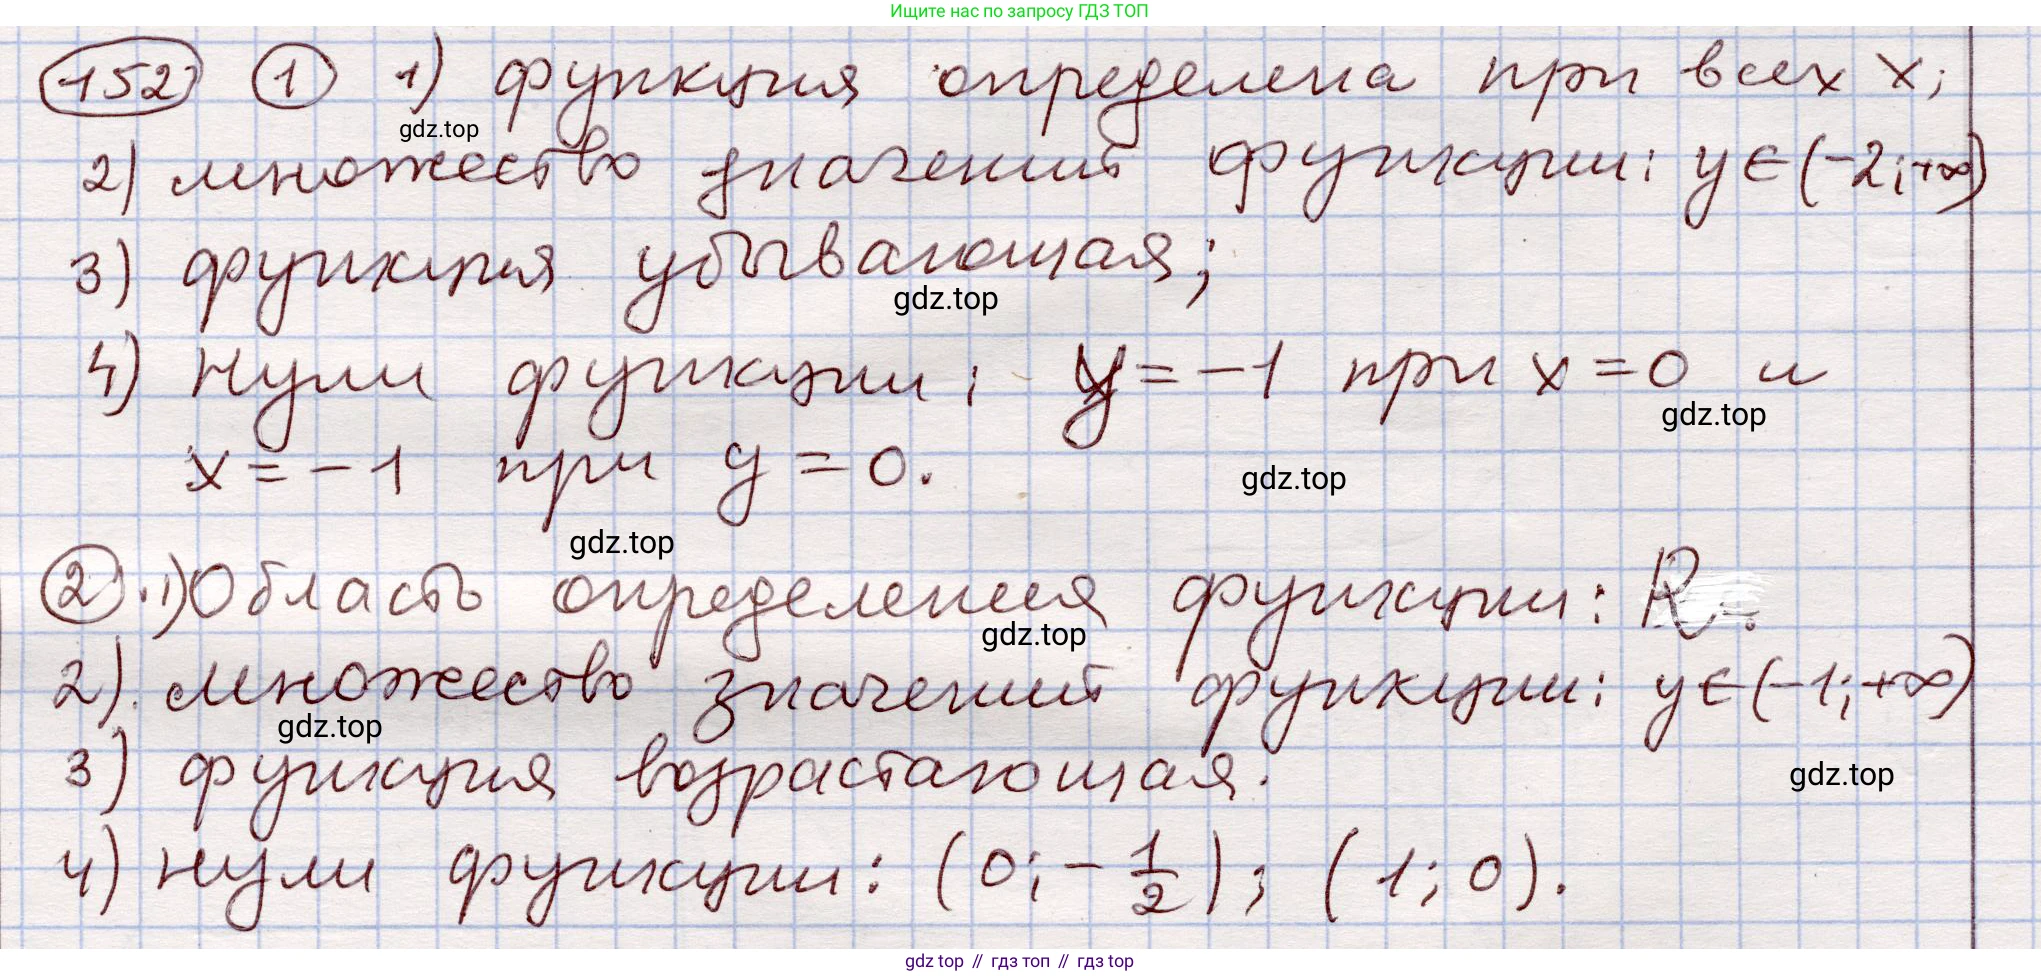 Ищите нас по запросу ГДЗ ТОП
152 1 1) функция определена при всех x;
gdz.top
2) множество значений функции: y∈(-2;+∞)
3) функция убывающая;
gdz.top
4) нули функции: y=-1 при x=0 и
gdz.top
x=-1 при y=0.
gdz.top
gdz.top
2. 1) Область определения функции: R.
gdz.top
2). множество значений функции: y∈(-1;+∞)
gdz.top
3) функция возрастающая.
gdz.top
4) нули функции: (0;-1/2); (1;0).
gdz top // гдз топ // гдз top